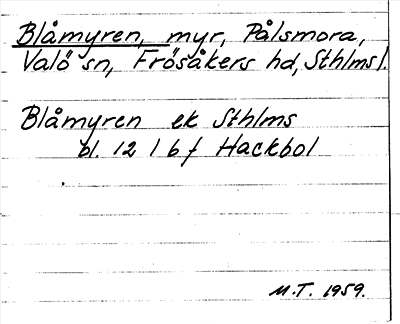 Blåmyren, myr, Pålsmora,
Valö sn, Frösåkers hd, Sthlms l.
Blåmyren ek Sthlms
bl. 12 l b f Hackbol
M.T. 1959.